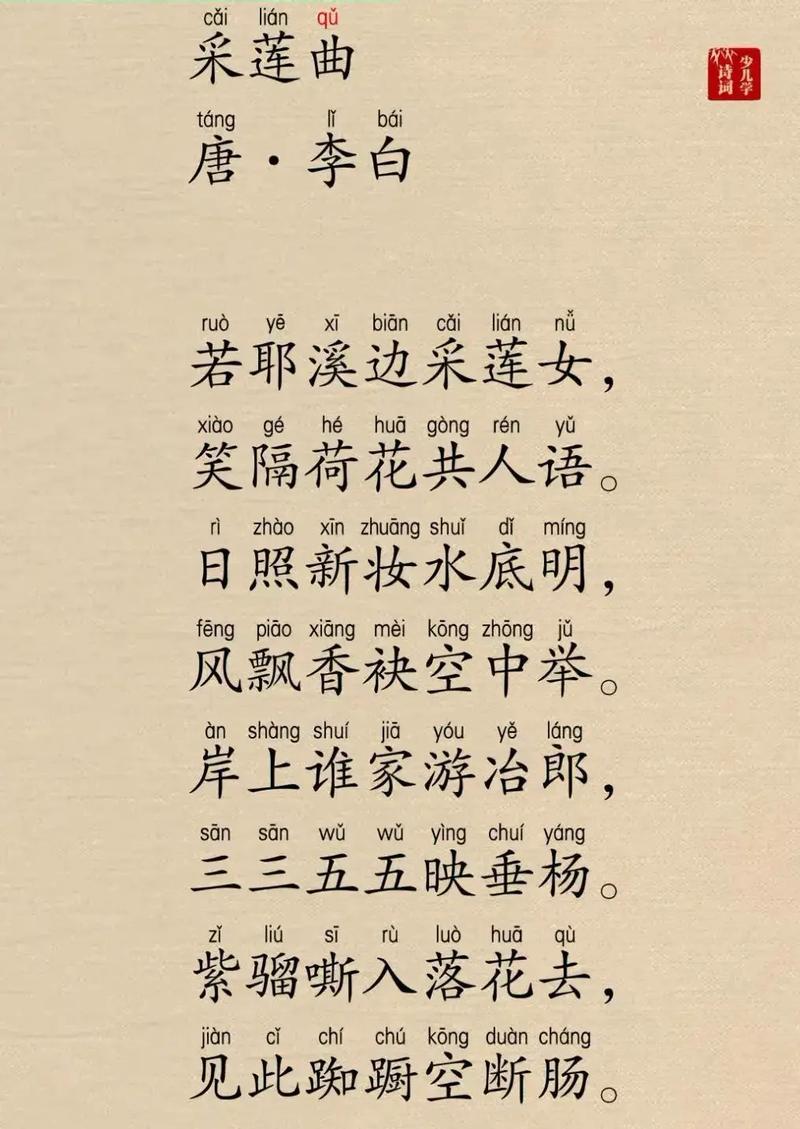 cǎi lián qǔ
采莲曲
táng lǐ bái
唐·李白
少儿学
诗词
ruò yē xī biān cǎi lián nǚ
若耶溪边采莲女，
xiào gé hé huā gòng rén yǔ
笑隔荷花共人语。
rì zhào xīn zhuāng shuǐ dǐ míng
日照新妆水底明，
fēng piāo xiāng mèi kōng zhōng jǔ
风飘香袂空中举。
àn shàng shuí jiā yóu yě láng
岸上谁家游冶郎，
sān sān wǔ wǔ yìng chuí yáng
三三五五映垂杨。
zǐ liú sī rù luò huā qù
紫骝嘶入落花去，
jiàn cǐ chí chú kōng duàn cháng
见此踟蹰空断肠。